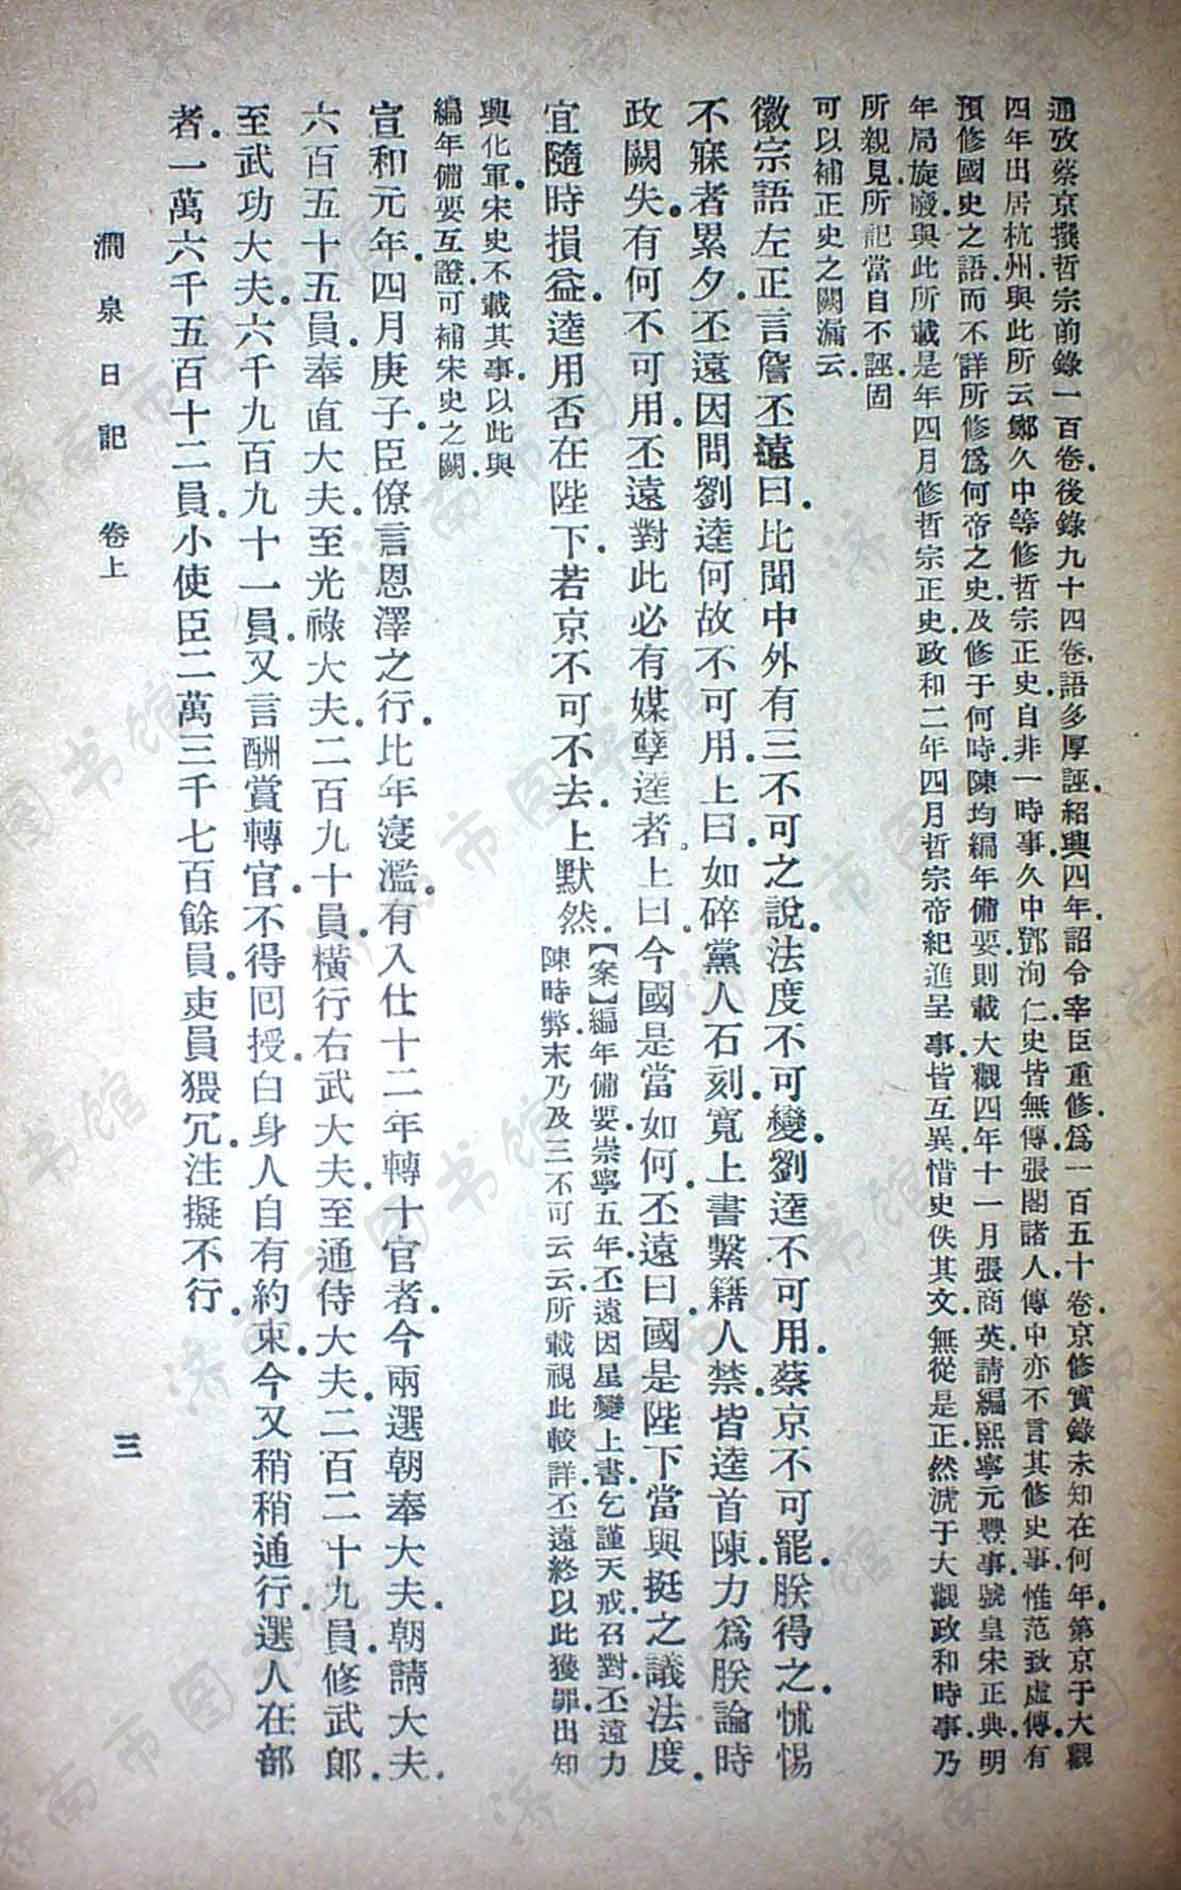 通攷蔡京撰哲宗前錄一百卷.後錄九十四卷.語多厚誣.紹興四年.詔令宰臣重修.爲一百五十卷.京修實錄未知在何年.第京于大觀
四年出居杭州.與此所云鄭久中等修哲宗正史.自非一時事.久中鄧洵仁史皆無傳.張閣諸人傳中亦不言其修史事.惟范致虛傳.有
預修國史之語.而不詳所修爲何帝之史.及修于何時.陳均編年備要則載大觀四年十一月張商英請編熙寧元豐事.號皇宋正典.明
年局旋廢.與此所載是年四月修哲宗正史.政和二年四月哲宗帝紀進呈.事皆互異.惜史佚其文.無從是正.然淲于大觀政和時事.乃
所親見.所記當自不誣.固
可以補正史之闕漏云.
徽宗語左正言詹丕遠曰.比聞中外有三不可之說.法度不可變.劉逵不可用.蔡京不可罷.朕得之.怵惕
不寐者累夕.丕遠因問劉逵何故不可用.上曰.如碎黨人石刻.寬上書繫籍人禁.皆逵首陳.力爲朕論時
政闕失.有何不可用.丕遠對此必有媒孽逵者.上曰.今國是當如何.丕遠曰.國是陛下當與挺之議.法度
宜隨時損益.逵用否在陛下.若京不可不去.上默然.
【案】編年備要.崇寧五年.丕遠因星變上書.乞謹天戒.召對.丕遠力
陳時弊.末乃及三不可云云.所載視此較詳.丕遠終以此獲罪.出知
興化軍.宋史不載其事.以此與
編年備要互證.可補宋史之闕.
宣和元年.四月庚子.臣僚言恩澤之行.比年寖濫.有入仕十二年轉十官者.今兩選朝奉大夫.朝請大夫.
六百五十五員.奉直大夫至光祿大夫.二百九十員.橫行右武大夫.至通侍大夫.二百二十九員.修武郎.
至武功大夫.六千九百九十一員.又言酬賞轉官.不得回授.白身人自有約束.今又稍稍通行.選人在部
者.一萬六千五百十二員.小使臣二萬三千七百餘員.吏員猥冗.注擬不行.
澗泉日記 卷上 三